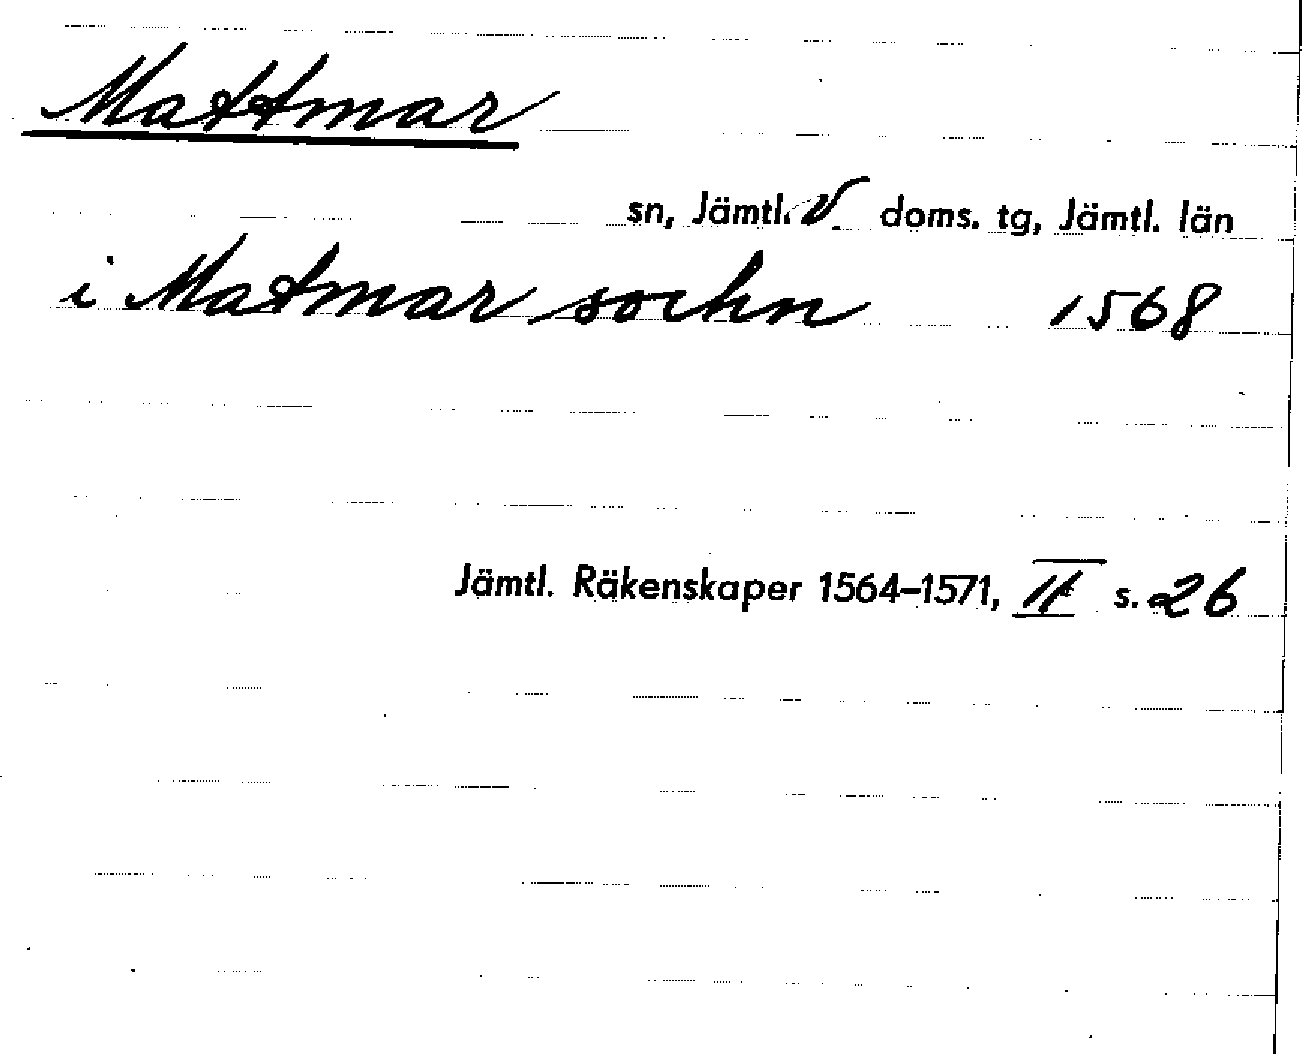 Mattmar
sn, Jämtl. V doms. tg, Jämtl. län
i Matmar sochn 1568
Jämtl. Räkenskaper 1564–1571, II s. 26